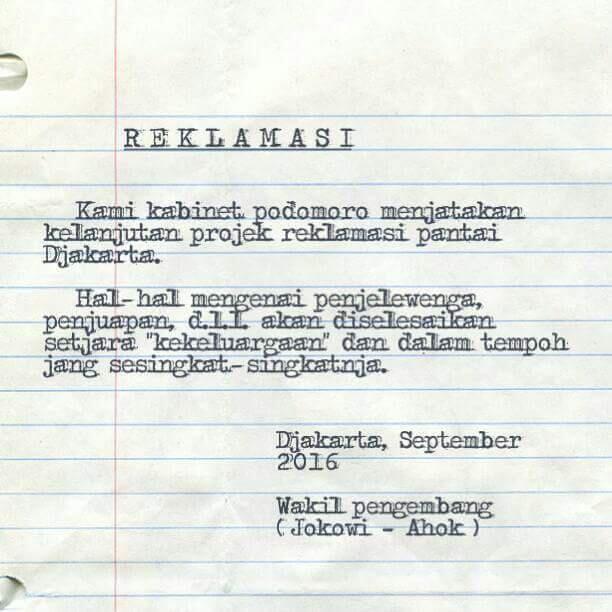 REKLAMASI
Kami kabinet podomoro menjatakan
kelanjutan projek reklamasi pantai
Djakarta.
Hal-hal mengenai penjelewenga,
penjuapan, d.l.l. akan diselesaikan
setjara "kekeluargaan" dan dalam tempoh
jang sesingkat-singkatnja.
Djakarta, September
2016
Wakil pengembang
(Jokowi - Ahok)